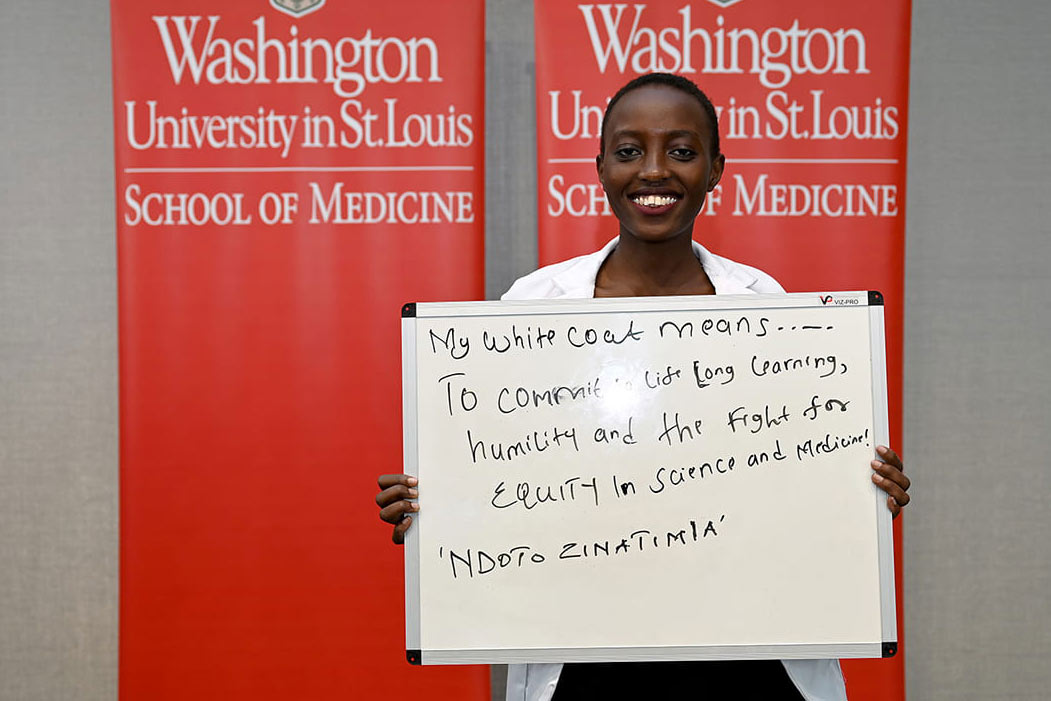 Washington
University in St. Louis
SCHOOL OF MEDICINE
Washington
Un in St. Louis
SCH F MEDICINE
VP VIZ-PRO
My white coat means.....
To commit to Life Long Learning,
humility and the Fight for
EQUITY In Science and Medicine!
'NDOTO ZINATIMIA'